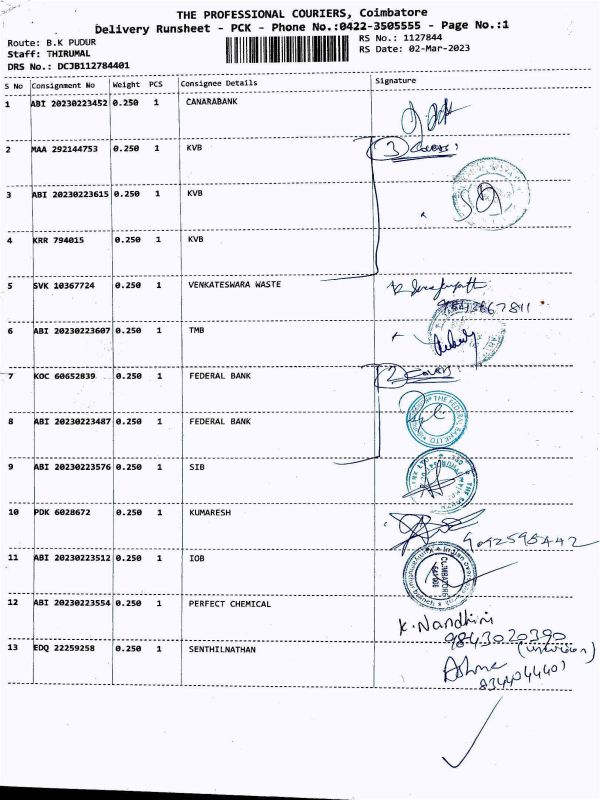 THE PROFESSIONAL COURIERS, Coimbatore
Delivery Runsheet - PCK - Phone No.:0422-3505555 - Page No.:1
Route: B.K PUDUR
RS No.: 1127844
Staff: THIRUMAL
RS Date: 02-Mar-2023
DRS No.: DCJB112784401
S No Consignment No Weight PCS Consignee Details Signature
1 ABI 20230223452 0.250 1 CANARABANK
2 MAA 292144753 0.250 1 KVB (3) Covers
3 ABI 20230223615 0.250 1 KVB
4 KRR 794015 0.250 1 KVB
5 SVK 10367724 0.250 1 VENKATESWARA WASTE
6 ABI 20230223607 0.250 1 TMB
7 KOC 60652839 0.250 1 FEDERAL BANK (2) Covers
8 ABI 20230223487 0.250 1 FEDERAL BANK
THE FEDERAL BANK LTD
9 ABI 20230223576 0.250 1 SIB
10 PDK 6028672 0.250 1 KUMARESH
11 ABI 20230223512 0.250 1 IOB
12 ABI 20230223554 0.250 1 PERFECT CHEMICAL
K. Nandhini
9843020390
13 EDQ 22259258 0.250 1 SENTHILNATHAN